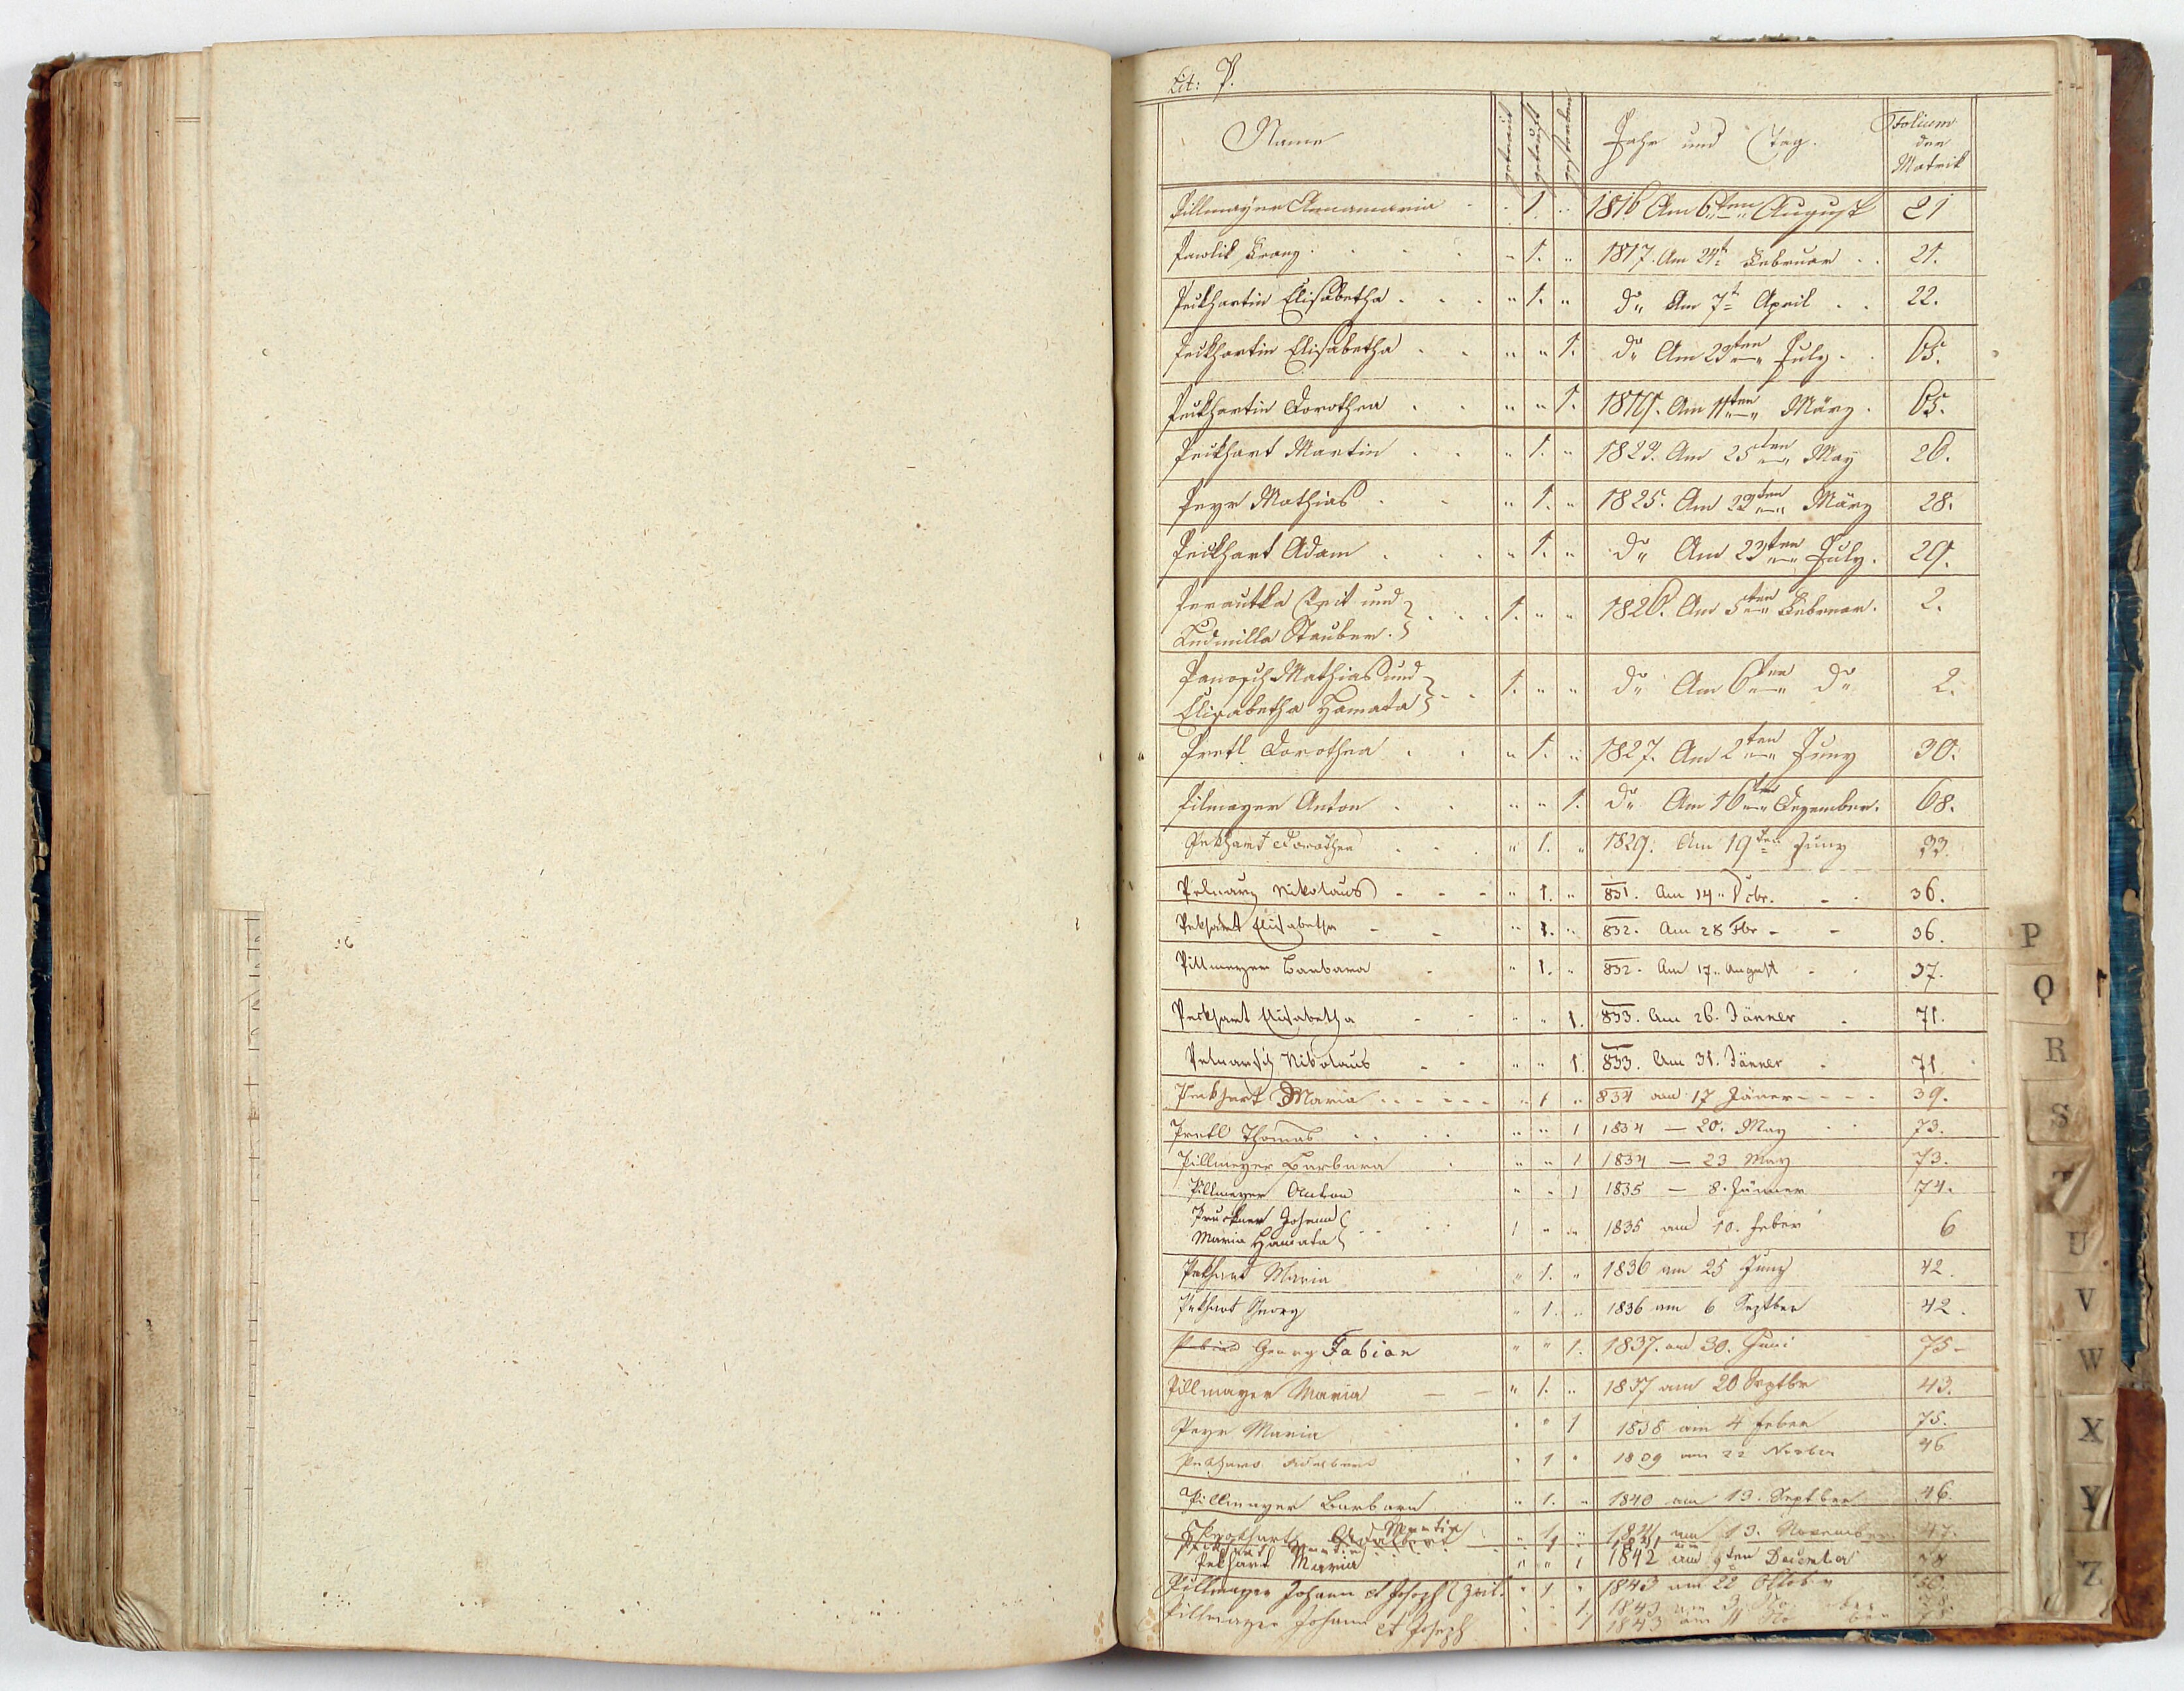 Lit: P.
Name getraut getauft gestorben Jahr und Tag. Folium
der
Matrik
Pillmayer Annamaria - . 1. " 1816 Am 6ten August 21
Pawlik Franz . . - - " 1. " 1817. Am 24t Februar . . 21.
Peckhartin Elisabetha . . . " 1. " do Am 7t April . . 22.
Peckhartin Elisabetha . . " " 1. do Am 23ten July . . 65.
Peckhartin Dorothea . . " " 1. 1819. Am 11ten März . 65.
Peckhart Martin . . " 1. " 1823. Am 25ten May 26.
Peyr Mathias . - " 1. " 1825. Am 22ten März 28.
Peckhart Adam . . . " 1. " do Am 23ten July . 29.
Perautka Veit und
Ludmilla Stauber . } . . . 1. " " 1826. Am 5ten Februar . 2.
Panosch Mathias und
Elisabetha Hamata } - . 1. " " do Am 6ten do 2.
Pretl Dorothea . . " 1. " 1827. Am 2ten Juny 30.
Pilmayer Anton . . " " 1. do Am 16ten Dezember . 68.
Pekhart Dorothea . . . " 1. " 1829. Am 19ten Juny 33.
Pelnarz Nikolaus - - - " 1. " 831. Am 14. - . 36.
Pekhart Elisabetha - - " 1. " 832. Am 28 Fbr - - 36.
Pillmeyer Barbara - " 1. " 832. Am 17. August - . 37.
Peckhart Elisabetha - - " " 1. 833. Am 26. Jänner . 71.
Pelnarsch Nikolaus - - " " 1. 833. Am 31. Jänner - 71
Peckhart Maria . . - . - - " 1 " 834 am 17 Jäner - - - - 39.
Pretl Thomas . . . . " " 1 1834 — 20. May . . 73.
Pillmeyer Barbara . " " 1 1834 — 23 May 73.
Pillmeyer Anton " " 1 1835 — 8. Jänner 74.
Pruckner Johann
Maria Hamata } . . . . 1 " " 1835 am 10. Feber 6
Pekhart Maria " 1. " 1836 am 25 Juny 42.
Pekhart Georg " 1. " 1836 am 6 Septber 42.
Georg Fabian " " 1. 1837. am 30. Juni 75-
Pillmayer Maria — — " 1. " 1837 am 20 Septbr 43.
Peyr Maria " " 1 1838 am 4 Feber 75.
Pekhart Adalbert " 1 " 1839 am 22 Novber 46
Pillmayer Barbara " 1. " 1840 am 13. Septber 46.
Martin
Adalbert " 1 " 1841 am 13. November 47.
Pekhart Maria " " 1 1842 am 9ten December
Pillmayer Johann et Joseph " 1 " 1843 am 22 Oktober 50.
Pillmayer Johann et Joseph . . 1 1843 am
1 1843 am 11
P
Q
R
S
T
U
V
W
X
Y
Z